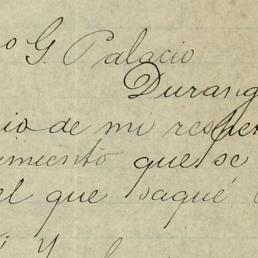 º G. Palacio
Durang
io de mi respe
imiento que se
el que saqué